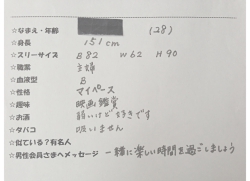 ☆なまえ・年齢 (28)
☆身長 151cm
☆スリーサイズ B82 W62 H90
☆職業 主婦
☆血液型 B
☆性格 マイペース
☆趣味 映画鑑賞
☆お酒 弱いけど好きです
☆タバコ 吸いません
☆似ている?有名人
☆男性会員さまへメッセージ 一緒に楽しい時間を過ごしましょう